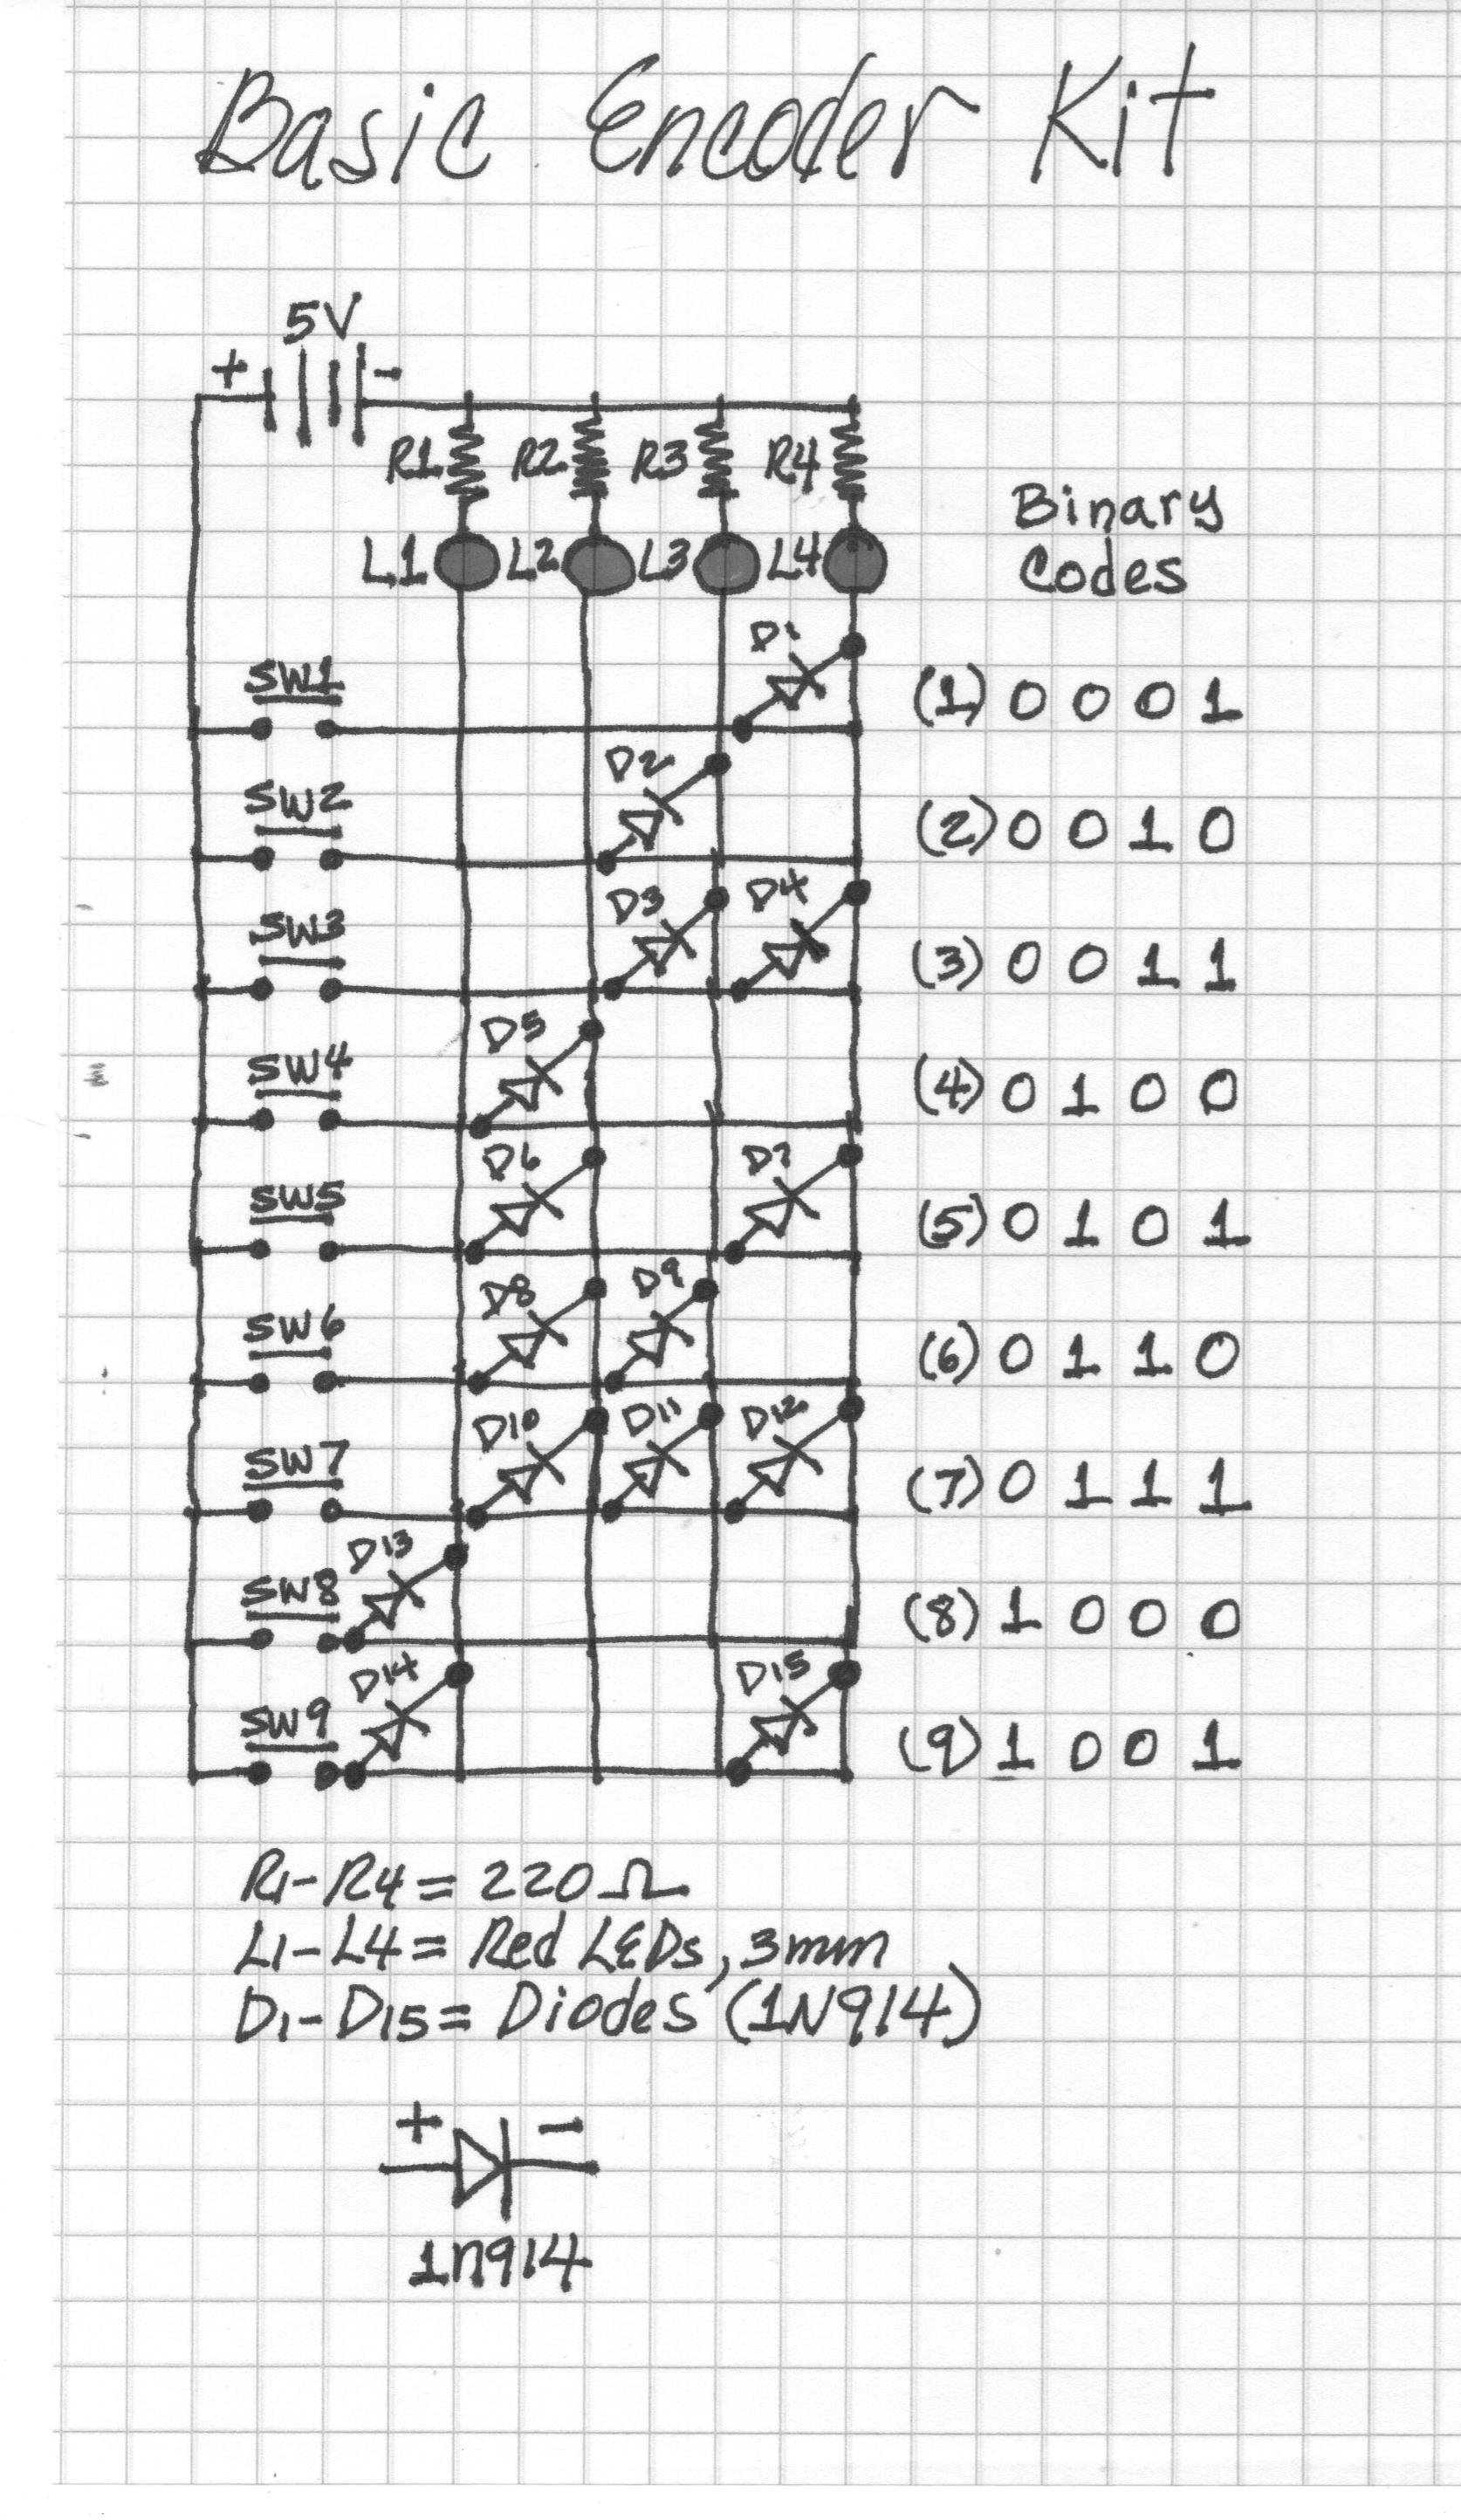 Basic Encoder Kit
5V
+ -
R1 R2 R3 R4
L1 L2 L3 L4
Binary
Codes
D1
SW1
(1) 0 0 0 1
D2
SW2
(2) 0 0 1 0
D3 D4
SW3
(3) 0 0 1 1
D5
SW4
(4) 0 1 0 0
D6 D7
SW5
(5) 0 1 0 1
D8 D9
SW6
(6) 0 1 1 0
D10 D11 D12
SW7
(7) 0 1 1 1
D13
SW8
(8) 1 0 0 0
D14 D15
SW9
(9) 1 0 0 1
R1-R4 = 220 Ω
L1-L4 = Red LEDs, 3mm
D1-D15 = Diodes (1N914)
+ -
1n914